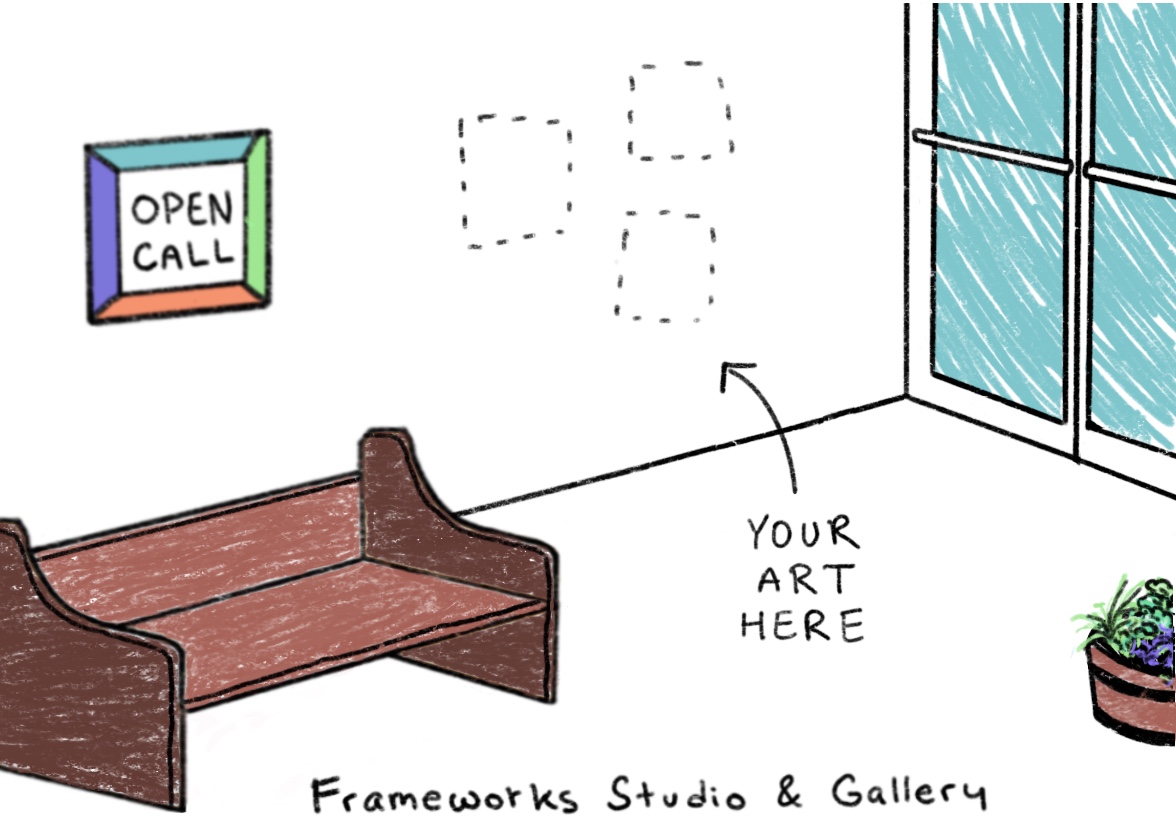 OPEN
CALL
YOUR
ART
HERE
Frameworks Studio & Gallery